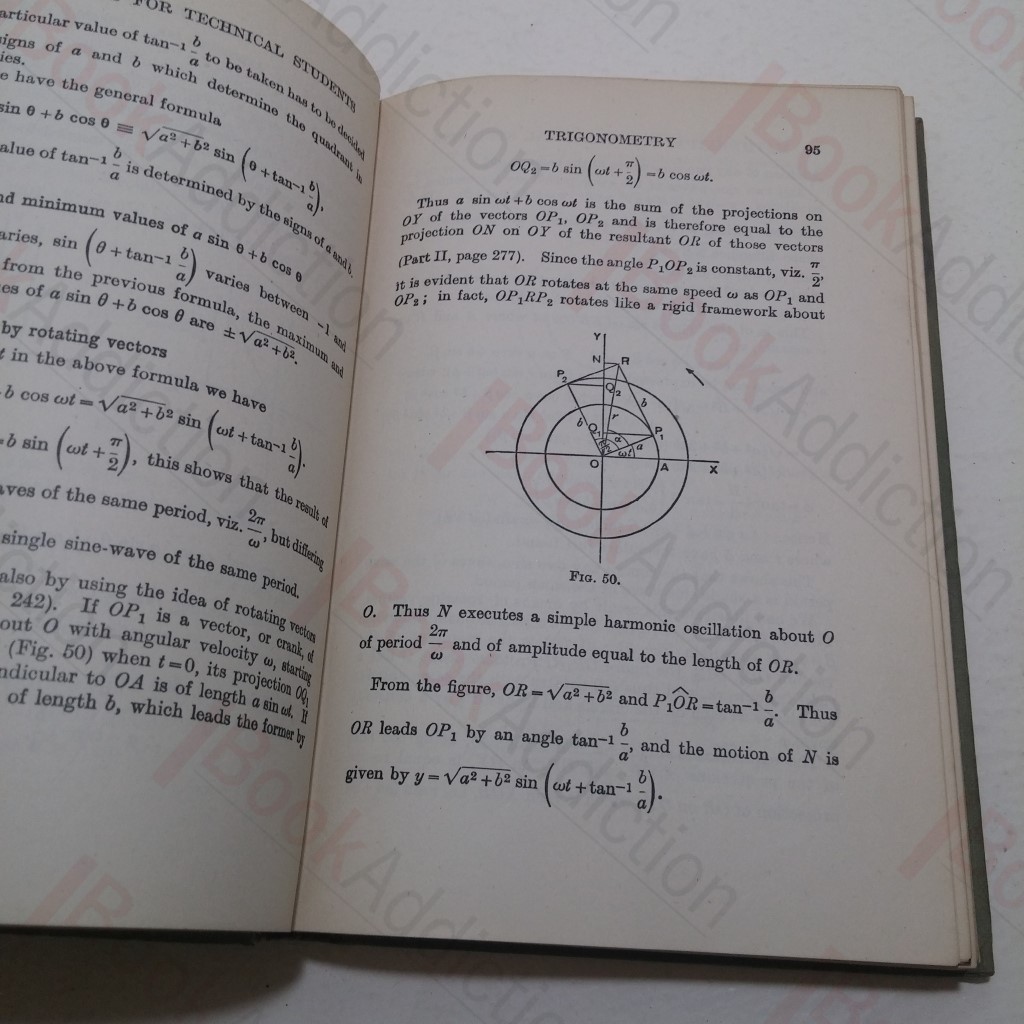 FOR TECHNICAL STUDENTS
articular value of tan−1 b/a to be taken has to be decided
signs of a and b which determine the quadrant in
ies.
e have the general formula
sin θ + b cos θ ≡ √a² + b² sin (θ + tan−1 b/a),
alue of tan−1 b/a is determined by the signs of a and b.
nd minimum values of a sin θ + b cos θ
aries, sin (θ + tan−1 b/a) varies between −1 and
from the previous formula, the maximum and
es of a sin θ + b cos θ are ± √a² + b².
by rotating vectors
t in the above formula we have
b cos ωt = √a² + b² sin (ωt + tan−1 b/a).
b sin (ωt + π/2), this shows that the result of
aves of the same period, viz. 2π/ω, but differing
single sine-wave of the same period.
also by using the idea of rotating vectors
242). If OP₁ is a vector, or crank, of
out O with angular velocity ω, starting
(Fig. 50) when t = 0, its projection OQ₁
ndicular to OA is of length a sin ωt. If
of length b, which leads the former by
TRIGONOMETRY 95
OQ₂ = b sin (ωt + π/2) = b cos ωt.
Thus a sin ωt + b cos ωt is the sum of the projections on
OY of the vectors OP₁, OP₂ and is therefore equal to the
projection ON on OY of the resultant OR of those vectors
(Part II, page 277). Since the angle P₁OP₂ is constant, viz. π/2,
it is evident that OR rotates at the same speed ω as OP₁ and
OP₂; in fact, OP₁RP₂ rotates like a rigid framework about
Y
N R
P₂
Q₂
b
r
b Q₁ P₁
α a
ωt
O A X
FIG. 50.
O. Thus N executes a simple harmonic oscillation about O
of period 2π/ω and of amplitude equal to the length of OR.
From the figure, OR = √a² + b² and P₁ÔR = tan−1 b/a. Thus
OR leads OP₁ by an angle tan−1 b/a, and the motion of N is
given by y = √a² + b² sin (ωt + tan−1 b/a).
BookAddiction